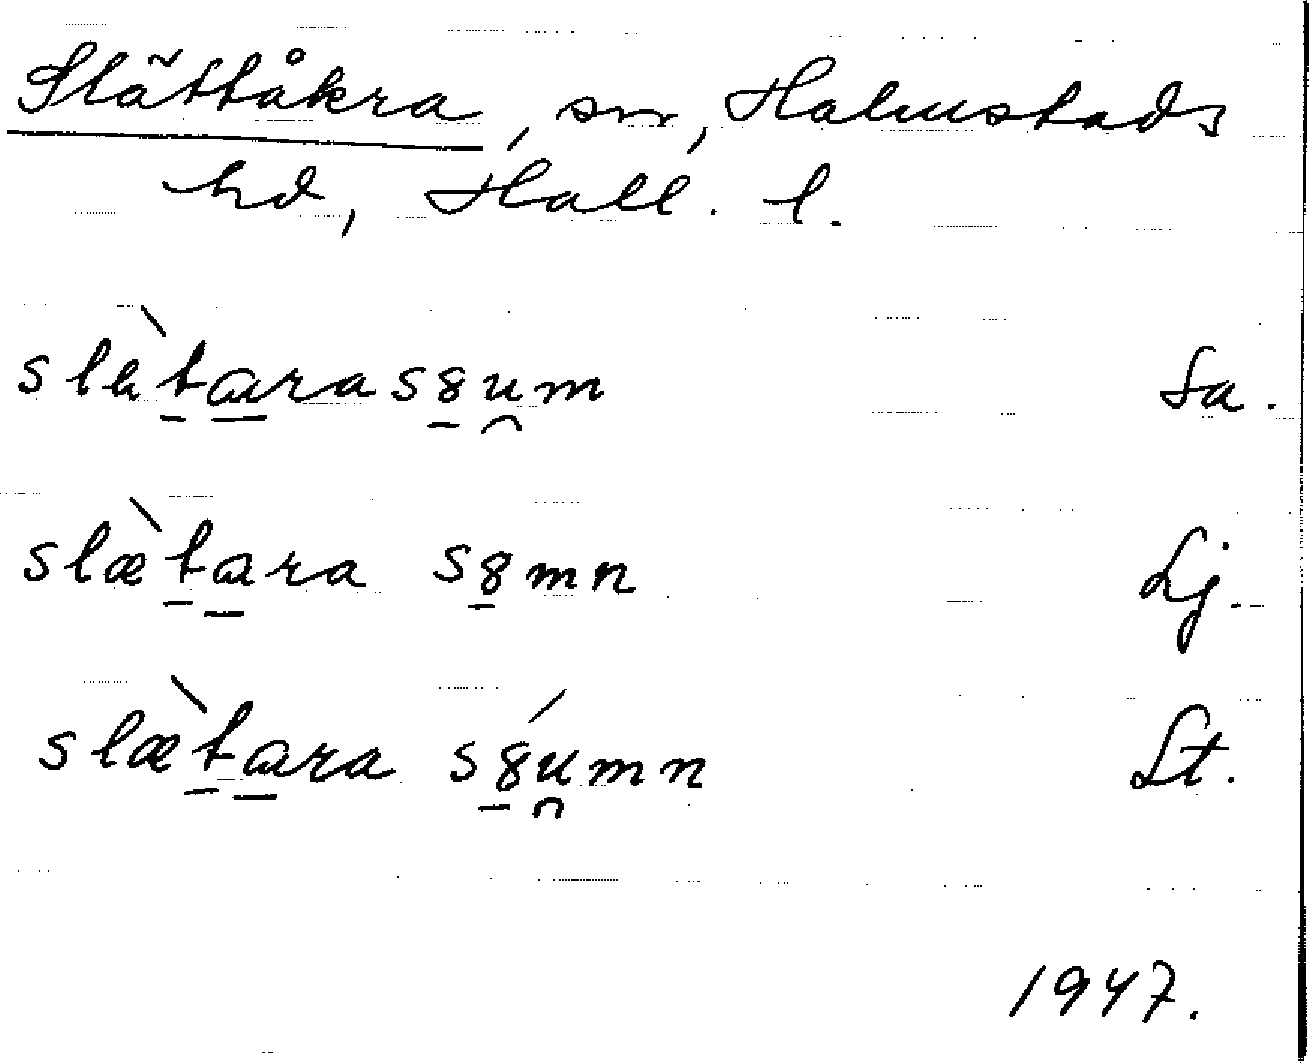 Slättåkra, sn, Halmstads
hd, Hall. l.
slätarasȣum Sa.
slætara sȣmn Lj.
slætara sȣumn St.
1947.